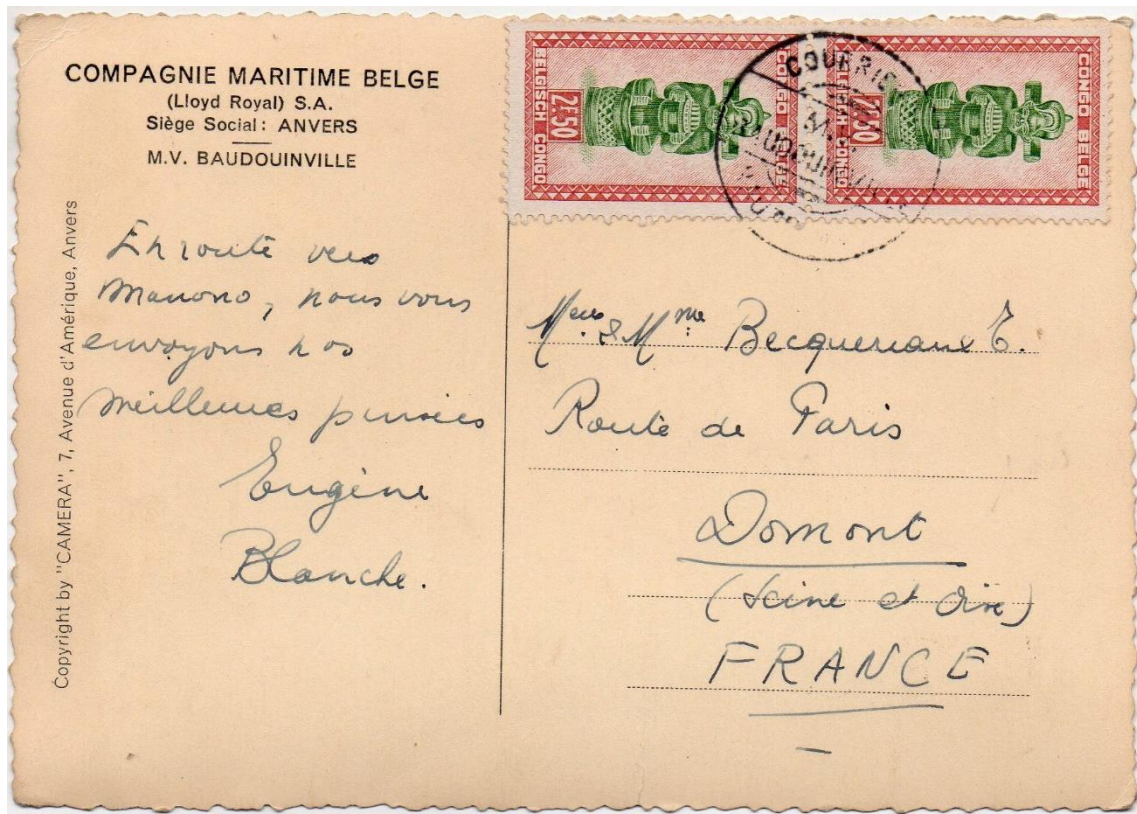 COMPAGNIE MARITIME BELGE
(Lloyd Royal) S.A.
Siège Social: ANVERS
M.V. BAUDOUINVILLE
Copyright by "CAMERA", 7, Avenue d'Amérique, Anvers
En route vers
Manono, nous vous
envoyons nos
meilleures pensées
Eugène
Blanche.
CONGO BELGE
BELGISCH CONGO
2F.50
CONGO BELGE
BELGISCH CONGO
2F.50
COURRIE
Meur & Mme Becqueriaux E.
Route de Paris
Domont
(Seine et Oise)
FRANCE